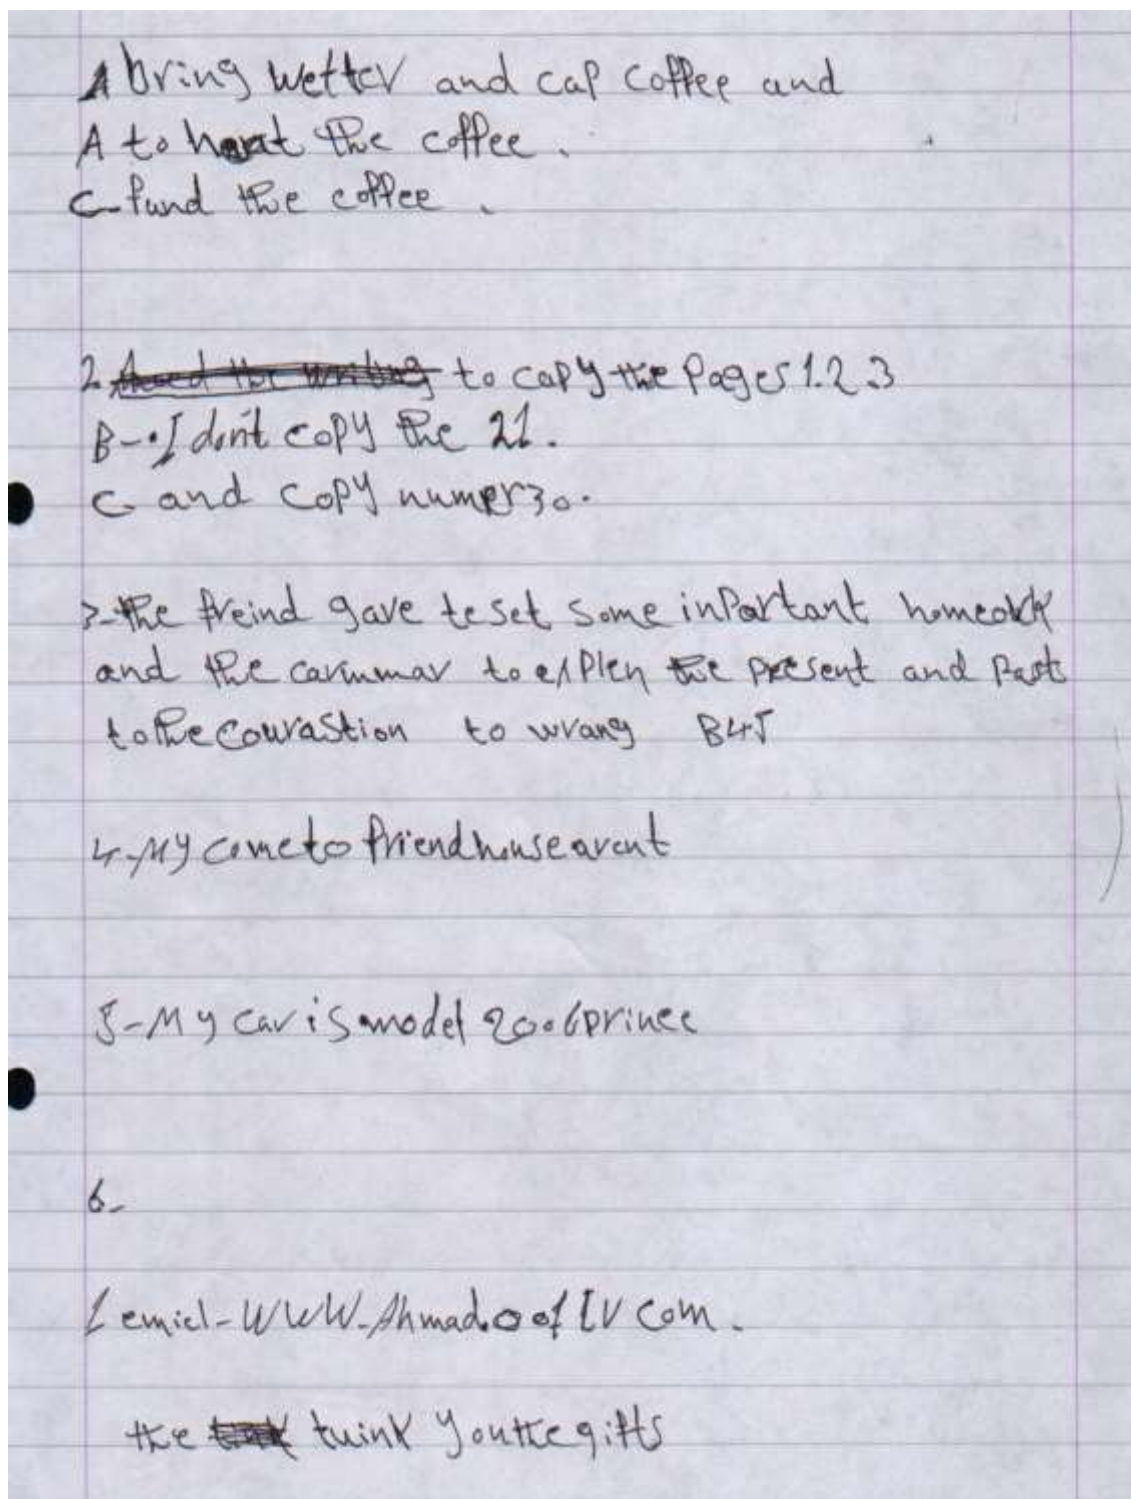 A bring wetter and cap coffee and
A to heat the coffee.
C- fund the coffee.
2. to capy the Pages 1.2.3
B-. I don't copy the 21.
C- and copy numper 30.
3- the freind gave te set some inportant homeo
and the carummar to explen the present and past
to the courastion to wrang B45
4- My come to friend house arent
5- My car is model 2006 prince
6-
1 emiel- WWW. Ahmad.
the twink you the gifts